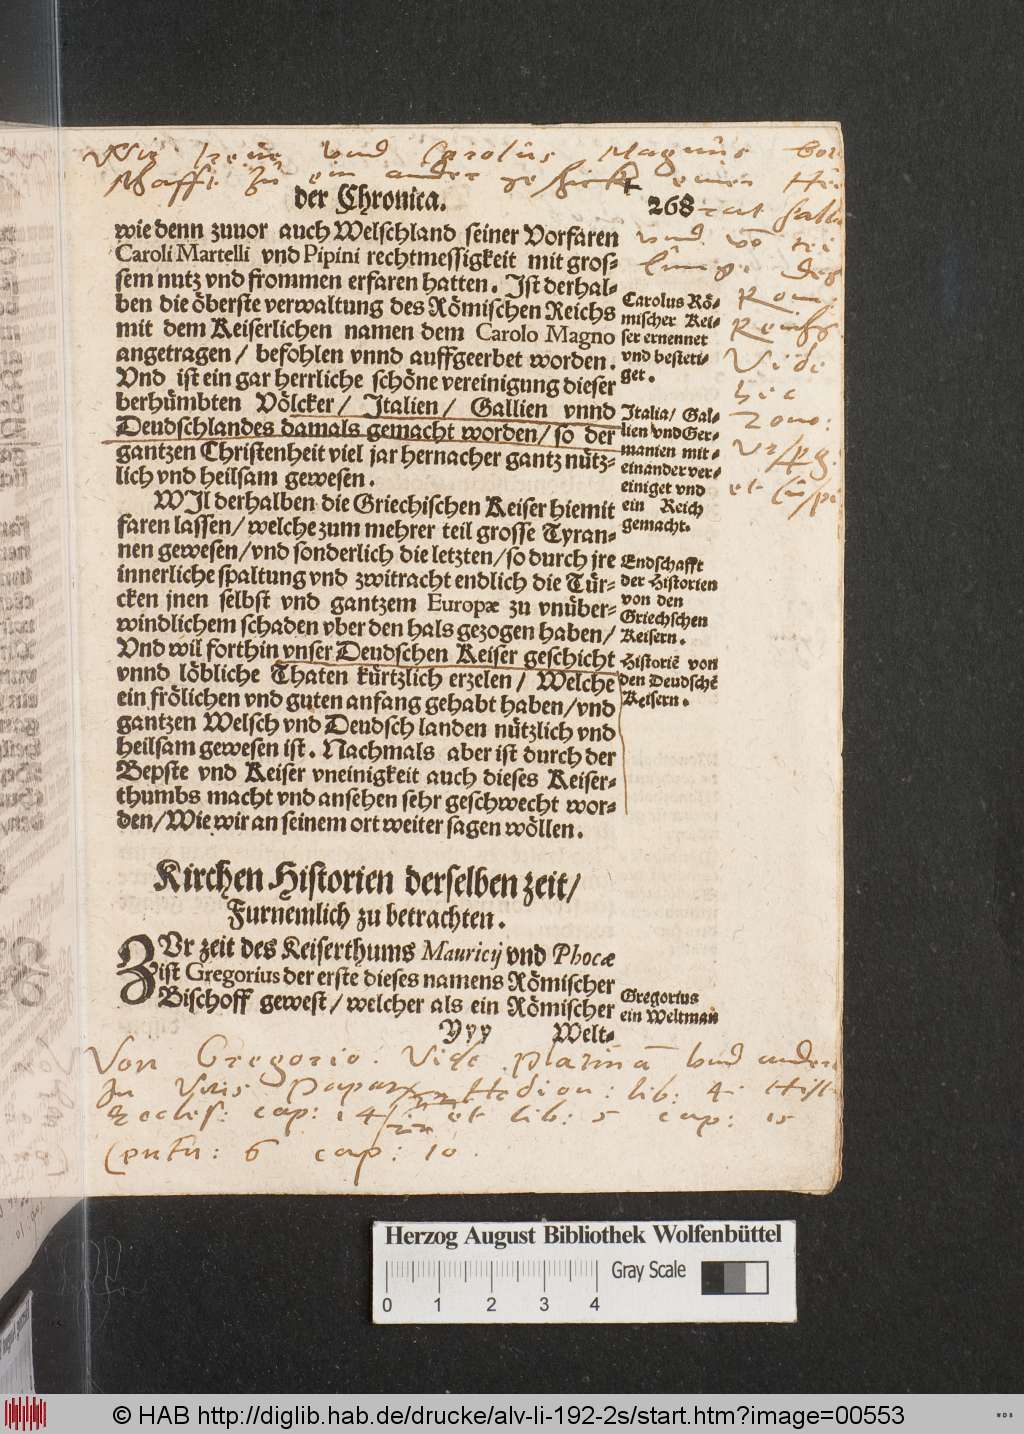 Wie Irene vnd Carolus Magnus bott
schafft zu ein ander geschickt einer Heu
der Chronica. 268
rat halb
vnd von tei
lung des
Röm:
Reichs
Vide
hic
Zono:
Vrspg:
et Cuspi
wie denn zuuor auch Welschland seiner Vorfaren
Caroli Martelli vnd Pipini rechtmessigkeit mit gros-
sem nutz vnd frommen erfaren hatten. Ist derhal-
ben die öberste verwaltung des Römischen Reichs
mit dem Keiserlichen namen dem Carolo Magno
angetragen/ befohlen vnnd auffgeerbet worden.
Vnd ist ein gar herrliche schöne vereinigung dieser
berhümbten Völcker/ Italien/ Gallien vnnd
Deudschlandes damals gemacht worden/ so der
gantzen Christenheit viel jar hernacher gantz nütz-
lich vnd heilsam gewesen.
WIl derhalben die Griechischen Keiser hiemit
faren lassen/ welche zum mehrer teil grosse Tyran-
nen gewesen/ vnd sonderlich die letzten/ so durch jre
innerliche spaltung vnd zwitracht endlich die Tür-
cken jnen selbst vnd gantzem Europæ zu vnüber-
windlichem schaden vber den hals gezogen haben/
Vnd wil forthin vnser Deudschen Keiser geschicht
vnnd löbliche Thaten kürtzlich erzelen/ Welche
ein frölichen vnd guten anfang gehabt haben/ vnd
gantzen Welsch vnd Deudsch landen nützlich vnd
heilsam gewesen ist. Nachmals aber ist durch der
Bepste vnd Keiser vneinigkeit auch dieses Keiser-
thumbs macht vnd ansehen sehr geschwecht wor-
den/ Wie wir an seinem ort weiter sagen wöllen.
Carolus Rö-
mischer Kei-
ser ernennet
vnd besteti-
get.
Italia/ Gal-
lien vnd Ger-
manien mit-
einander ver-
einiget vnd
ein Reich
gemacht.
Endschafft
der Historien
von den
Griechschen
Keisern.
Historiē von
den Deudschē
Keisern.
Kirchen Historien derselben zeit/
Furnemlich zu betrachten.
ZVr zeit des Keiserthums Mauricij vnd Phocæ
ist Gregorius der erste dieses namens Römischer
Bischoff gewest/ welcher als ein Römischer
Gregorius
ein Weltman
Yyy Welt-
Von Gregorio. Vide Platinā vnd andere
In Vitis Papar. Hedion: lib: 4. Hist
Eccles: cap: 14 et lib: 5 cap: 15
Centu: 6 cap: 10.
Herzog August Bibliothek Wolfenbüttel
0 1 2 3 4 Gray Scale
© HAB http://diglib.hab.de/drucke/alv-li-192-2s/start.htm?image=00553